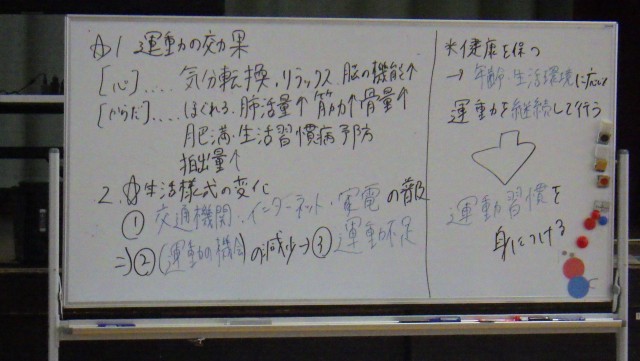 ☆1 運動の効果
[心]....気分転換.リラックス.脳の機能↑
[からだ]....ほぐれる.肺活量↑筋力↑骨量↑
肥満・生活習慣病予防
拍出量↑
2.☆生活様式の変化
①交通機関・インターネット・家電の普及
⇒②(運動の機会)の減少→③運動不足
*健康を保つ
→年齢・生活環境に応じて
運動を継続して行う
運動習慣を
身につける